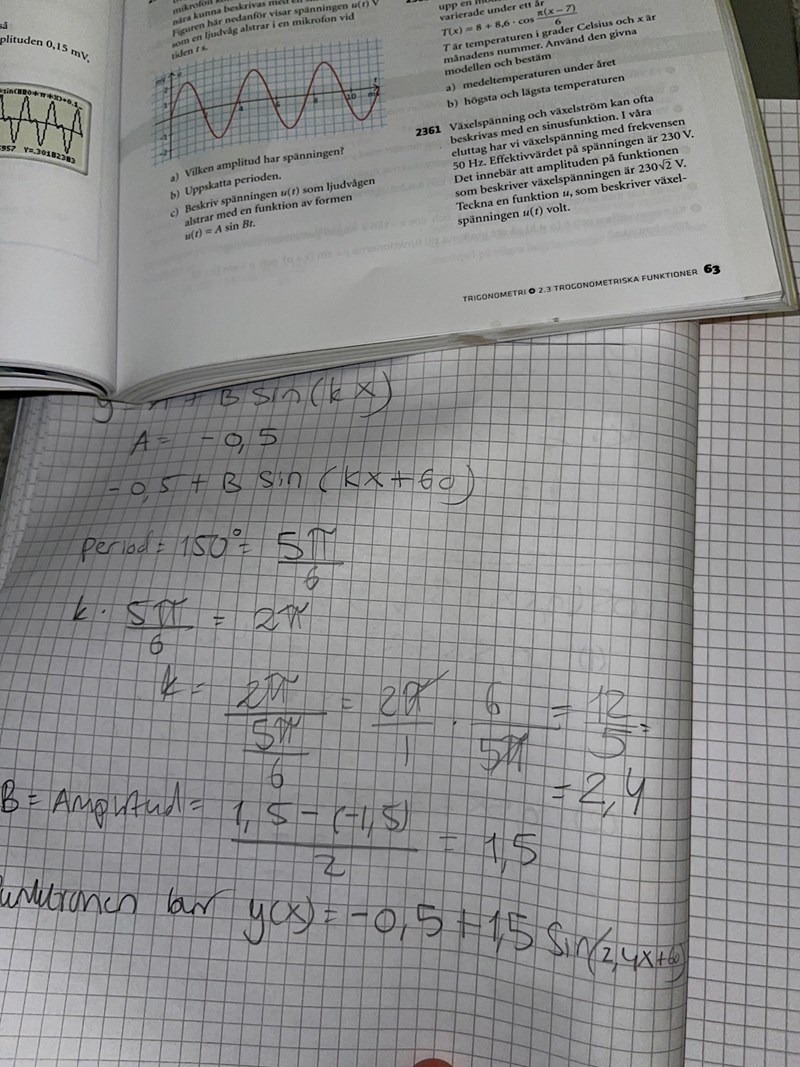 så
plituden 0,15 mV,
Y=.30182383
nära kunna beskrivas med en
Figuren här nedanför visar spänningen u(t) V
som en ljudvåg alstrar i en mikrofon vid
tiden t s.
a) Vilken amplitud har spänningen?
b) Uppskatta perioden.
c) Beskriv spänningen u(t) som ljudvågen
alstrar med en funktion av formen
u(t) = A sin Bt.
varierade under ett år
T(x) = 8 + 8,6 · cos π(x − 7)/6
T är temperaturen i grader Celsius och x är
månadens nummer. Använd den givna
modellen och bestäm
a) medeltemperaturen under året
b) högsta och lägsta temperaturen
2361 Växelspänning och växelström kan ofta
beskrivas med en sinusfunktion. I våra
eluttag har vi växelspänning med frekvensen
50 Hz. Effektivvärdet på spänningen är 230 V.
Det innebär att amplituden på funktionen
som beskriver växelspänningen är 230√2 V.
Teckna en funktion u, som beskriver växel-
spänningen u(t) volt.
TRIGONOMETRI 2.3 TROGONOMETRISKA FUNKTIONER 63
+ B sin(kx)
A = -0,5
-0,5 + B sin (kx+60)
period = 150° = 5π/6
k · 5π/6 = 2π
k = 2π/(5π/6) = 2π/1 · 6/5π = 12/5 =
= 2,4
B = Amplitud = (1,5 - (-1,5))/2 = 1,5
y(x) = -0,5 + 1,5 sin(2,4x+60)